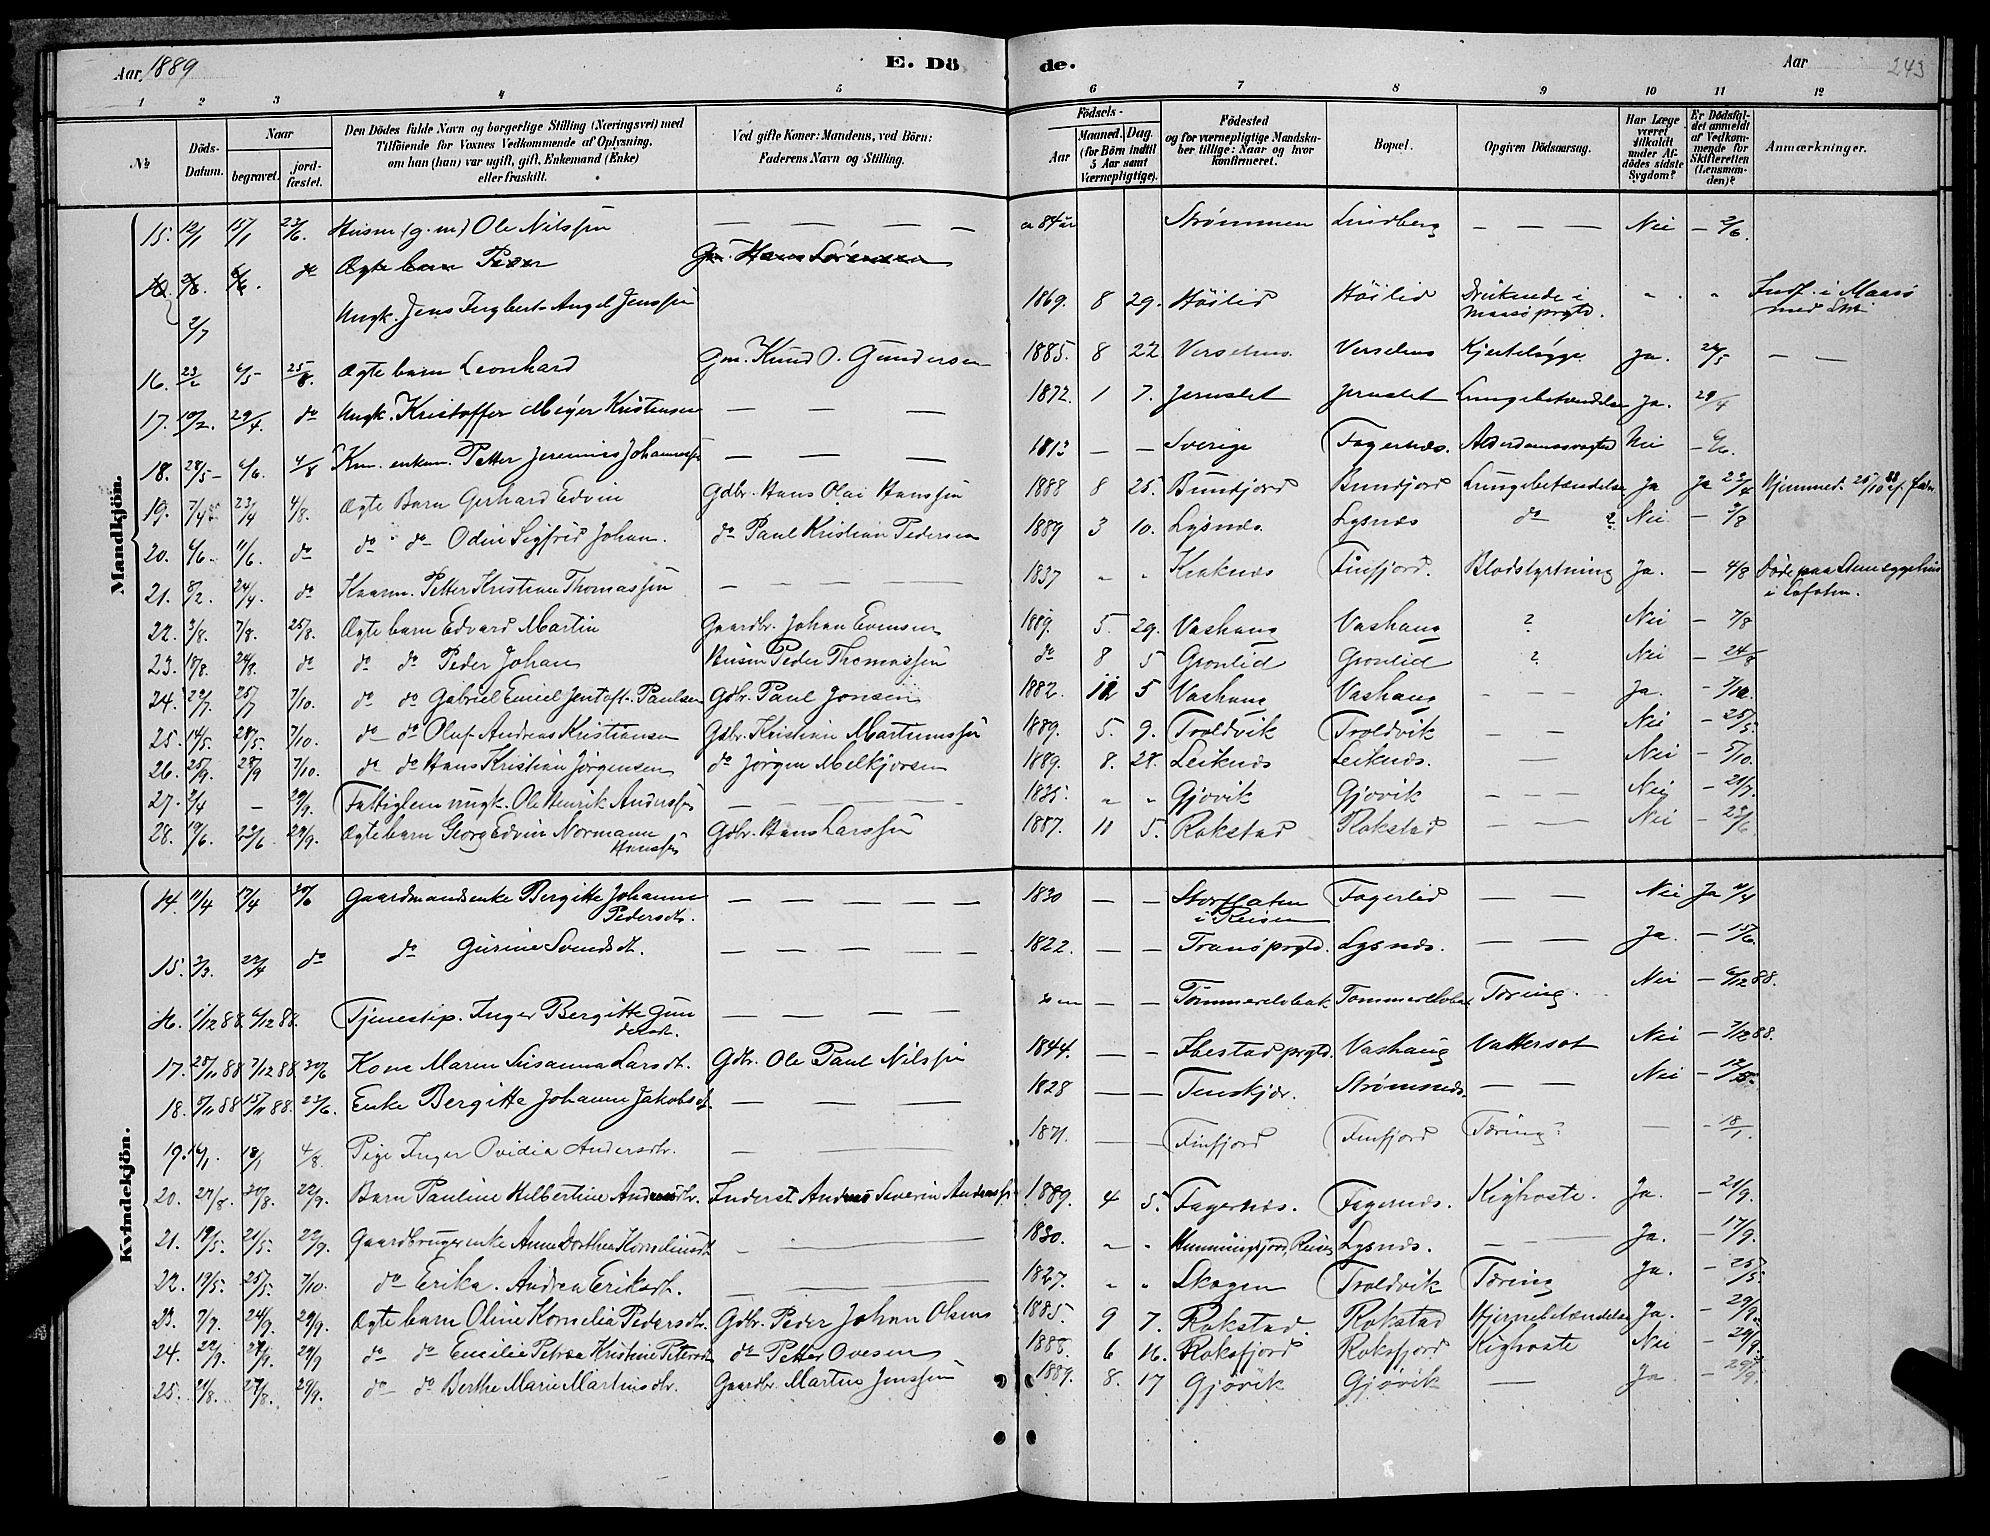 Aar 1889
E. Dö
de.
Aar
243
1 2 3 4 5 6 7 8 9 10 11 12
№
Döds-
Datum.
Naar
begravet.
jord-
fæstet.
Den Dödes fulde Navn og borgerlige Stilling (Næringsvei) med
Tilföiende for Voxnes Vedkommende af Oplysning,
om han (hun) var ugift, gift, Enkemand (Enke)
eller fraskilt.
Ved gifte Koner: Mandens, ved Börn:
Faderens Navn og Stilling.
Födsels-
Aar
Maaned. Dag.
(for Börn indtil
5 Aar samt
Værnepligtige).
Födested
og for værnepligtige Mandska-
ber tillige: Naar og hvor
konfirmeret.
Bopæl.
Opgiven Dödsaarsag.
Har Læge
været
tilkaldt
under Af-
dödes sidste
Sygdom?
Er Dödsfal-
det anmeldt
af Vedkom-
mende for
Skifteretten
(Lensman-
den)?
Anmærkninger.
Mandkjön.
15. 12/1 15/1 23/6. Husm (g.m) Ole Nilssen — — — — a 84 aar Strømmen Lindberg — — — Nei — 2/6.
do Ægte barn Peder Gm. Hans Sørensen
2/7 Ungk. Jens Ingbert Angel Jenssen 1869. 8 29. Høilid Høilid Druknede i Maasø prgld. " " Indf. i Maasø
16. 23/2 6/5 25/8. Ægte barn Leonhard Gm. Knud O. Gundersen 1885. 8 22 Verselnes. Verselnes Kjertelsyge Ja. 24/5 — —
17. 10/2. 29/4. do Ungk. Kristoffer Meyer Kristensen — — — 1872. 1 7. Jernslet Jernslet Lungebetændelse Ja. 29/4
18. 28/5 - 6/6. 4/8 Km. enkem. Petter Jeremias Johannessen — — — 1813 — — Sverige Fagernæs. Alderdomssvaghed Nei — 6/6.
19. 7/4 23/4 4/8. Ægte Barn Gerhard Edvin Gdbr. Hans Olai Hanssen 1888 8 25. Bundjord Bundjord Lungebetændelse Ja Ja 23/4 Hjemmed. 25/10 88
20. 4/6. 11/6. do do do Odin Sigfrid Johan. do Paul Kristian Pedersen 1889 3 10. Lysnæs. Lysnæs do ? Nei — 3/8
21. 8/2. 24/4. do Kaarm. Petter Kristian Thomassen — — — 1837 " " Kraknæs Finfjord. Blodstyrtning Ja. — 4/8 Døde paa Stene sygehus
i Lofoten.
22. 3/8. 7/8. 25/8. Ægte barn Edvard Martin Gaardbr. Johan Evensen 1889. 5. 29. Vashaug Vashaug ? Nei — 7/8
23. 18/8. 24/8. do do do Peder Johan Husm Peder Thomassen do 8 5 Gronlid Gronlid ? Nei — 24/8
24. 22/7. 25/7 7/10. do do Gabriel Emiel Jentoft Paulsen Gdbr. Paul Jonsen 1882. 12 5 Vashaug Vashaug — — — Ja. — 7/10.
25. 14/5. 28/5. 7/10. do do Oluf Andreas Kristiansen Gdbr. Kristian Martinussen 1889. 5. 9. Troldvik Troldvik — — Nei — 25/5.
26. 25/9. 28/9 7/10. do do Hans Kristian Jørgensen do Jørgen Melkjorsen 1889. 8. 28. Leiknæs Leiknæs. — Nei — 5/10.
27. 2/4 — 29/9. Fattiglem ungk. Ole Henrik Anderssen — — — 1835. " " Gjovik Gjovik — — — Nei — 21/7.
28. 19/6. 22/6 29/9. Ægte barn Georg Edvin Normann
Hanssen Gdbr. Hans Larssen 1887. 11 5. Rokstad Rokstad — — Nei — 22/6.
Kvindekjön.
14. 11/4 17/4 30/6 Gaardmandsenke Bergitte Johanne
Pedersdt. — — — — 1830 — — Storslaten
i Reisen Fagerlid — — Nei Ja 11/4
15. 3/3. 22/4 do do Gurine Svendsdt. — — — — 1822. — — Transø prgld. Lysnæs. — — Ja. — 15/6.
16. 1/12 88. 6/12 88. Tjenestep. Inger Bergitte Gun
dersdt. — — — — — — Tømmerelvbak. Tommerelvbak Tæring. Nei — 6/12 88.
17. 25/11 88 7/12 88. 30/6 Kone Maren Susanna Larsdt. Gdbr. Ole Paul Nilssen 1844. — — Ibestad prgld. Vashaug Vattersot Nei — 7/12 88.
18. 5/11 88 15/11 88. 23/6. Enke Bergitte Johanna Jakobsdt. — — — 1828 — — Tenskjær. Strømsnæs. — — Nei —
19. 14/1. 18/1 4/8. Pige Inger Ovidia Andersdtr. — — 1871. — — Finfjord Finfjord Tæring? — — 18/1.
20. 27/8. 30/8. 22/9. Barn Pauline Hilbertine Andersdtr. Inderst Anders Severin Andersen 1889. 4 5. Fagernæs. Fagernæs. Kighoste. Ja. — 21/9.
21. 19/5. 21/5. 22/9. Gaardbrugerenke Anne Dorthea Korneliusdt — — 1830. " " Hummingfjord, Reisen Lysnæs. — — Ja. — 17/9.
22. 19/5. 25/5. 7/10. do Erika Andrea Eriksdt. — — 1827. " " Skogen Troldvik Tæring Ja. — 25/5
23. 7/9. 24/9. 29/9. Ægte barn Oline Kornelia Pedersdtr. Gdbr. Peder Johan Olsens 1885. 9 7. Rokstad. Rokstad Hjernebetændelse Ja. — 29/9.
24. 22/9. 29/9. 29/9 do do Emilie Petrea Kristine Petersdt do Petter Ovesen 1888. 6 16. Roksfjord Roksfjord Kighoste Nei — 29/9.
25. 21/8. 27/8. 29/9. do do Berthe Marie Martinsdtr. Gaardbr. Martin Jenssen 1889. 8. 17 Gjøvik Gjøvik — Ja. — 29/9.